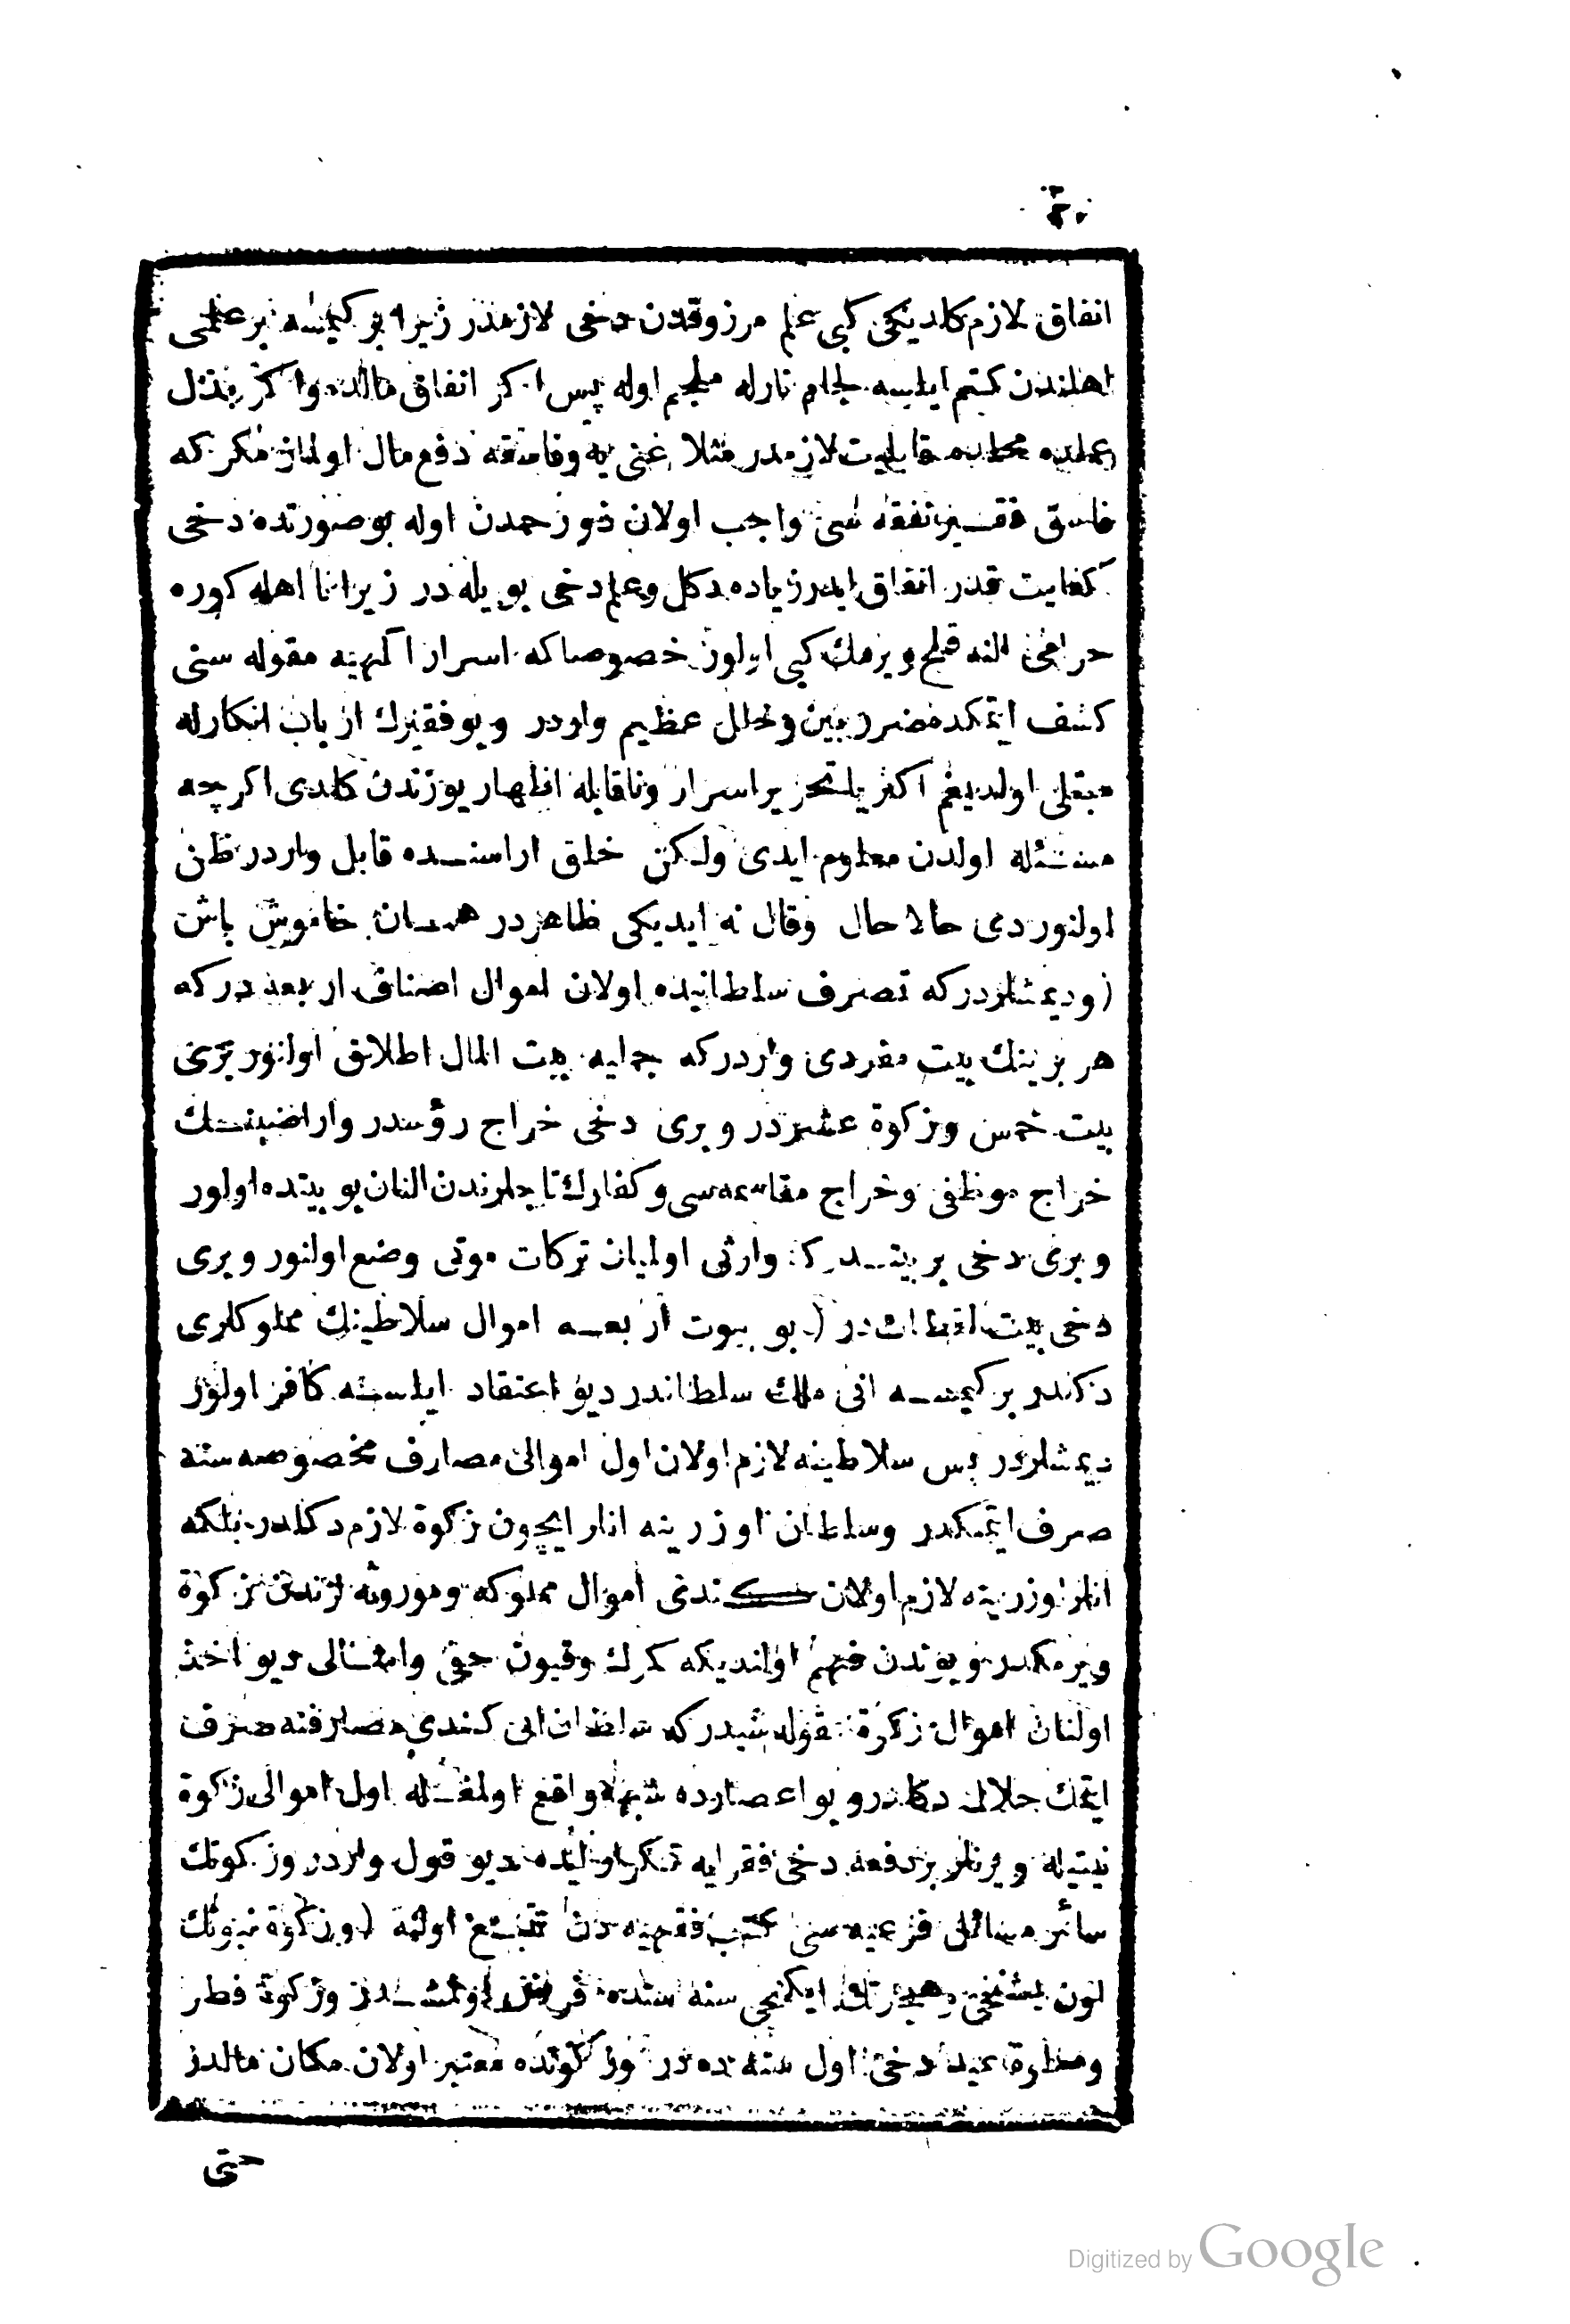 ٢٠
انفاق لازم كلديكى كبى علم مرزوقدن دخى لازمدر زيرا بر كيمسه بر علمى
اهلندن كتم ايلسه لجام نارله ملجم اوله پس اكر انفاق مالده واكر بذل
علمده محلده قابليت لازمدر مثلا غنى يه وفاسقه دفع مال اولنماز مكر كه
فاسق فقير نفقه سى واجب اولان ذو رحمدن اوله بو صورتده دخى
كفايت قدر انفاق ايدر زياده دكل وعلم دخى بويله در زيرا نا اهله كوره
حرامى النه قلج ويرمك كبى اولور خصوصا كه اسرار الهيه مقوله سنى
كشف ايتمكده ضرر بين وخلل عظيم واردر وبو فقيرك ارباب انكارله
مبتلى اولديغم اكثريا تحرير اسرار وناقابله اظهار يوزندن كلدى اكرچه
مسئله اولدن معلوم ايدى ولكن خلق اراسنده قابل واردر ظن
اولنوردى حالا حال وقال نه ايديكى ظاهردر همان خاموش باش
(وديمشلردركه تصرف سلطانيده اولان اموال اصناف اربعه دركه
هر برينك بيت مفردى واردركه جمله يه بيت المال اطلاق اولنور برى
بيت خمس وزكوة عشردر وبرى دخى خراج رؤسدر واراضينك
خراج موظفى وخراج مقاسمه سى وكفارك تاجلرندن النان بو بيتده اولور
وبرى دخى بر بيتدركه وارثى اولميان تركات موتى وضع اولنور وبرى
دخى بيت لقطاتدر (بو بيوت اربعه اموال سلاطينك مملوكلرى
دكلدر بر كيمسه انى ملك سلطاندر ديو اعتقاد ايلسه كافر اولور
ديمشلردر پس سلاطينه لازم اولان اول اموالى مصارف مخصوصه سنه
صرف ايتمكدر وسلطان اوزرينه انلر ايچون زكوة لازم دكلدر بلكه
انلر اوزرينه لازم اولان كندى اموال مملوكه وموروثه لرندن زكوة
ويرمكدر وبوندن فهم اولنديكه كمرك وقيون حقى وامثالى ديو اخذ
اولنان اموال زكوة مقوله سيدر كه سلطان انى كندى مصارفنه صرف
ايتمك حلال دكلدر وبو اعصارده شبهه واقع اولمغله اول اموالى زكوة
نيتيله ويرنلر بر دفعه دخى فقرايه تكرار ايده ديو قول واردر وزكوتك
سائر مسائل فرعيه سى كتب فقهيه دن تتبع اولنه (وزكوة نبوتك
اون بشنجى وهجرتك ايكنجى سنه سنده فرض اولمشدر وزكوة فطر
وصلوة عيد دخى اول سنه ده در وزكوتده معتبر اولان مكان مالدر
حتى
Digitized by Google